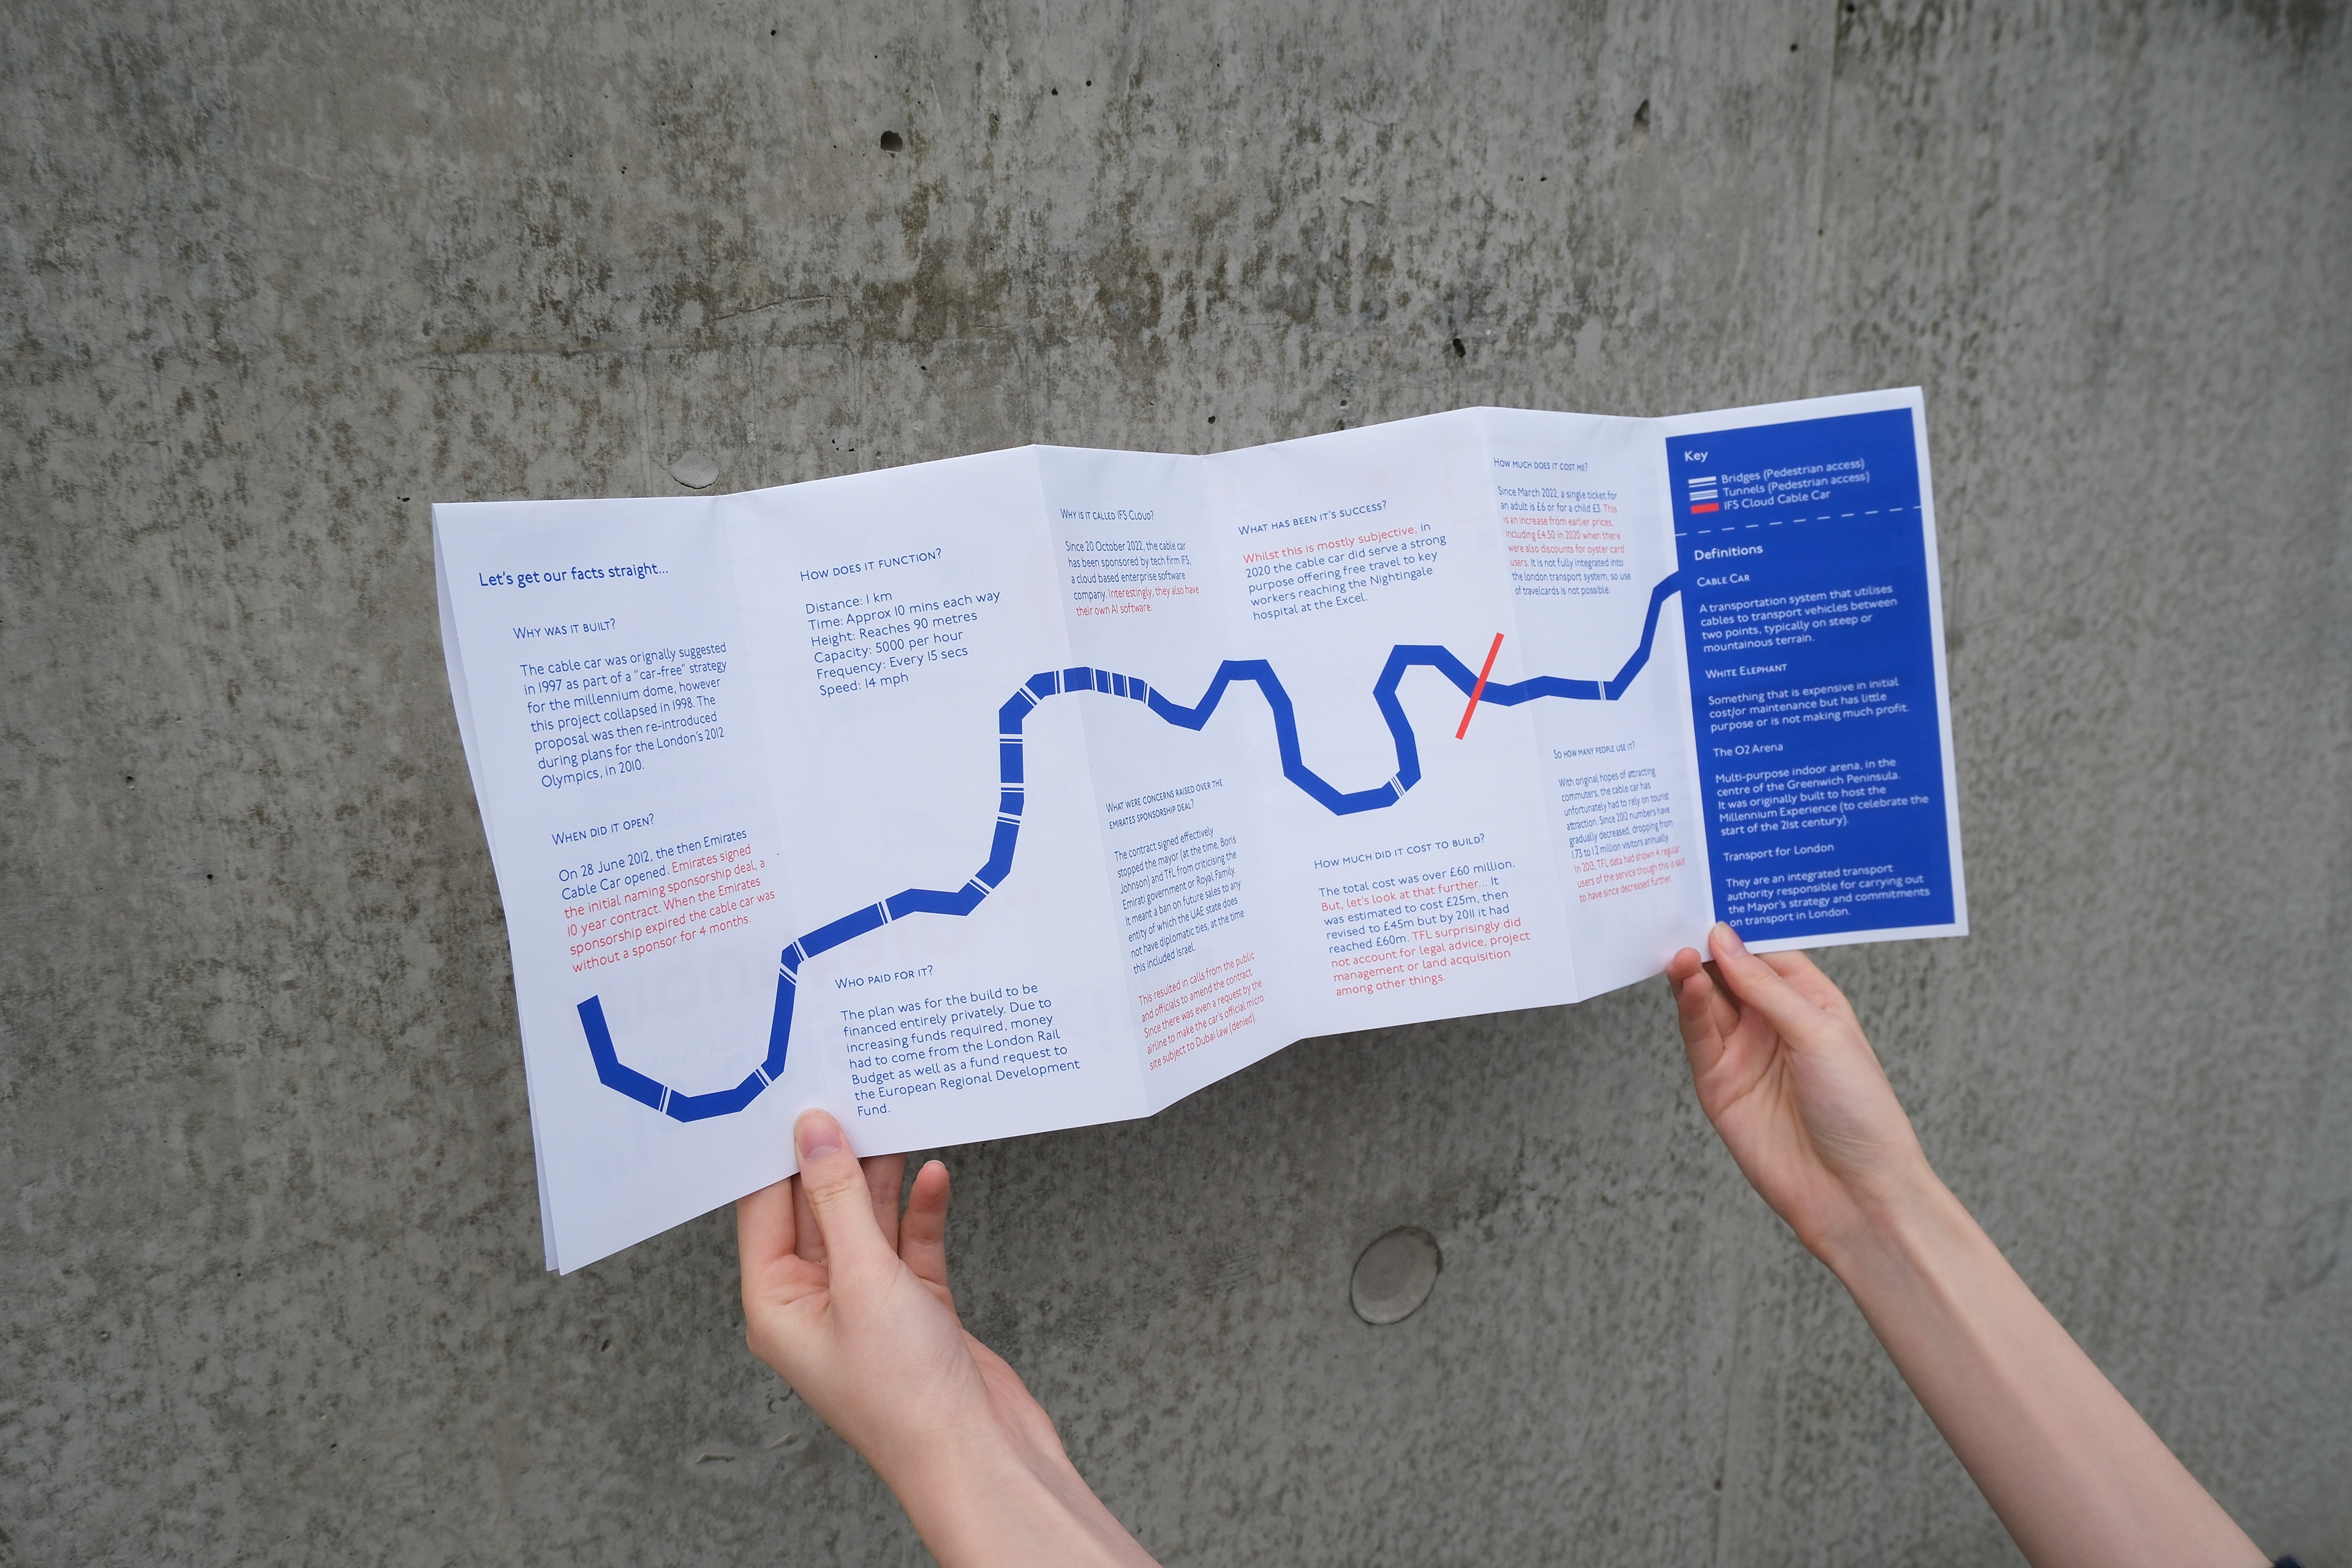 Let's get our facts straight...
Why was it built?
The cable car was orignally suggested
in 1997 as part of a "car-free" strategy
for the millennium dome, however
this project collapsed in 1998. The
proposal was then re-introduced
during plans for the London's 2012
Olympics, in 2010.
When did it open?
On 28 June 2012, the then Emirates
Cable Car opened. Emirates signed
the initial naming sponsorship deal, a
10 year contract. When the Emirates
sponsorship expired the cable car was
without a sponsor for 4 months.
How does it function?
Distance: 1 km
Time: Approx 10 mins each way
Height: Reaches 90 metres
Capacity: 5000 per hour
Frequency: Every 15 secs
Speed: 14 mph
Who paid for it?
The plan was for the build to be
financed entirely privately. Due to
increasing funds required, money
had to come from the London Rail
Budget as well as a fund request to
the European Regional Development
Fund.
Why is it called IFS Cloud?
Since 20 October 2022, the cable car
has been sponsored by tech firm IFS,
a cloud based enterprise software
company. Interestingly, they also have
their own AI software.
What were concerns raised over the
emirates sponsorship deal?
The contract signed effectively
stopped the mayor (at the time, Boris
Johnson) and TFL from criticising the
Emirati government or Royal Family.
It meant a ban on future sales to any
entity of which the UAE state does
not have diplomatic ties, at the time
this included Israel.
This resulted in calls from the public
and officials to amend the contract.
Since there was even a request by the
airline to make the car's official micro
site subject to Dubai law (denied).
What has been it's success?
Whilst this is mostly subjective, in
2020 the cable car did serve a strong
purpose offering free travel to key
workers reaching the Nightingale
hospital at the Excel.
How much did it cost to build?
The total cost was over £60 million.
But, let's look at that further... It
was estimated to cost £25m, then
revised to £45m but by 2011 it had
reached £60m. TFL surprisingly did
not account for legal advice, project
management or land acquisition
among other things.
How much does it cost me?
Since March 2022, a single ticket for
an adult is £6 or for a child £3. This
is an increase from earlier prices,
including £4.50 in 2020 when there
were also discounts for oyster card
users. It is not fully integrated into
the london transport system, so use
of travelcards is not possible.
So how many people use it?
With original hopes of attracting
commuters, the cable car has
unfortunately had to rely on tourist
attraction. Since 2012 numbers have
gradually decreased, dropping from
1.73 to 1.2 million visitors annually.
In 2013, TFL data had shown 4 regular
users of the service though this is said
to have since decreased further.
Key
Bridges (Pedestrian access)
Tunnels (Pedestrian access)
IFS Cloud Cable Car
Definitions
Cable Car
A transportation system that utilises
cables to transport vehicles between
two points, typically on steep or
mountainous terrain.
White Elephant
Something that is expensive in initial
cost/or maintenance but has little
purpose or is not making much profit.
The O2 Arena
Multi-purpose indoor arena, in the
centre of the Greenwich Peninsula.
It was originally built to host the
Millennium Experience (to celebrate the
start of the 21st century).
Transport for London
They are an integrated transport
authority responsible for carrying out
the Mayor's strategy and commitments
on transport in London.